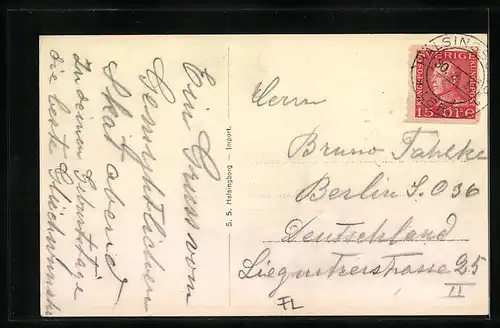 Ein Gruss von
Gemuhtlichen
Skat abend
Zu deinen Geburtstage
die beste Glückwünsche
S. S. Helsingborg — Import.
SVERIGE
15 ÖRE
HÄLSING
30
Herrn
Bruno Fahlke
Berlin S.O 36
Deutschland
Liegnitzerstrasse 25
II
FL